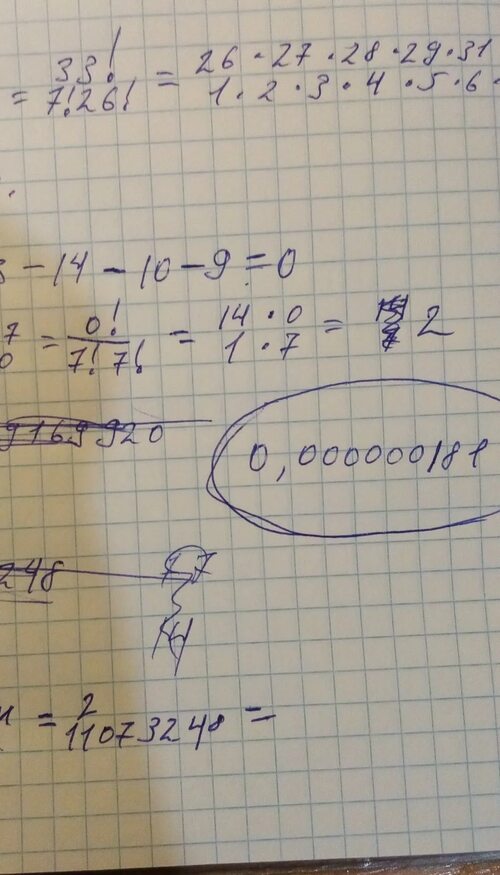 = 33! / 7!26! = 26 · 27 · 28 · 29 · 31 / 1 · 2 · 3 · 4 · 5 · 6 ·
- 14 - 10 - 9 = 0
7 0 = 0! / 7! 7! = 14 · 0 / 1 · 7 = 2
9169920
0,000000181
248
77
14
= 2 / 11073248 =